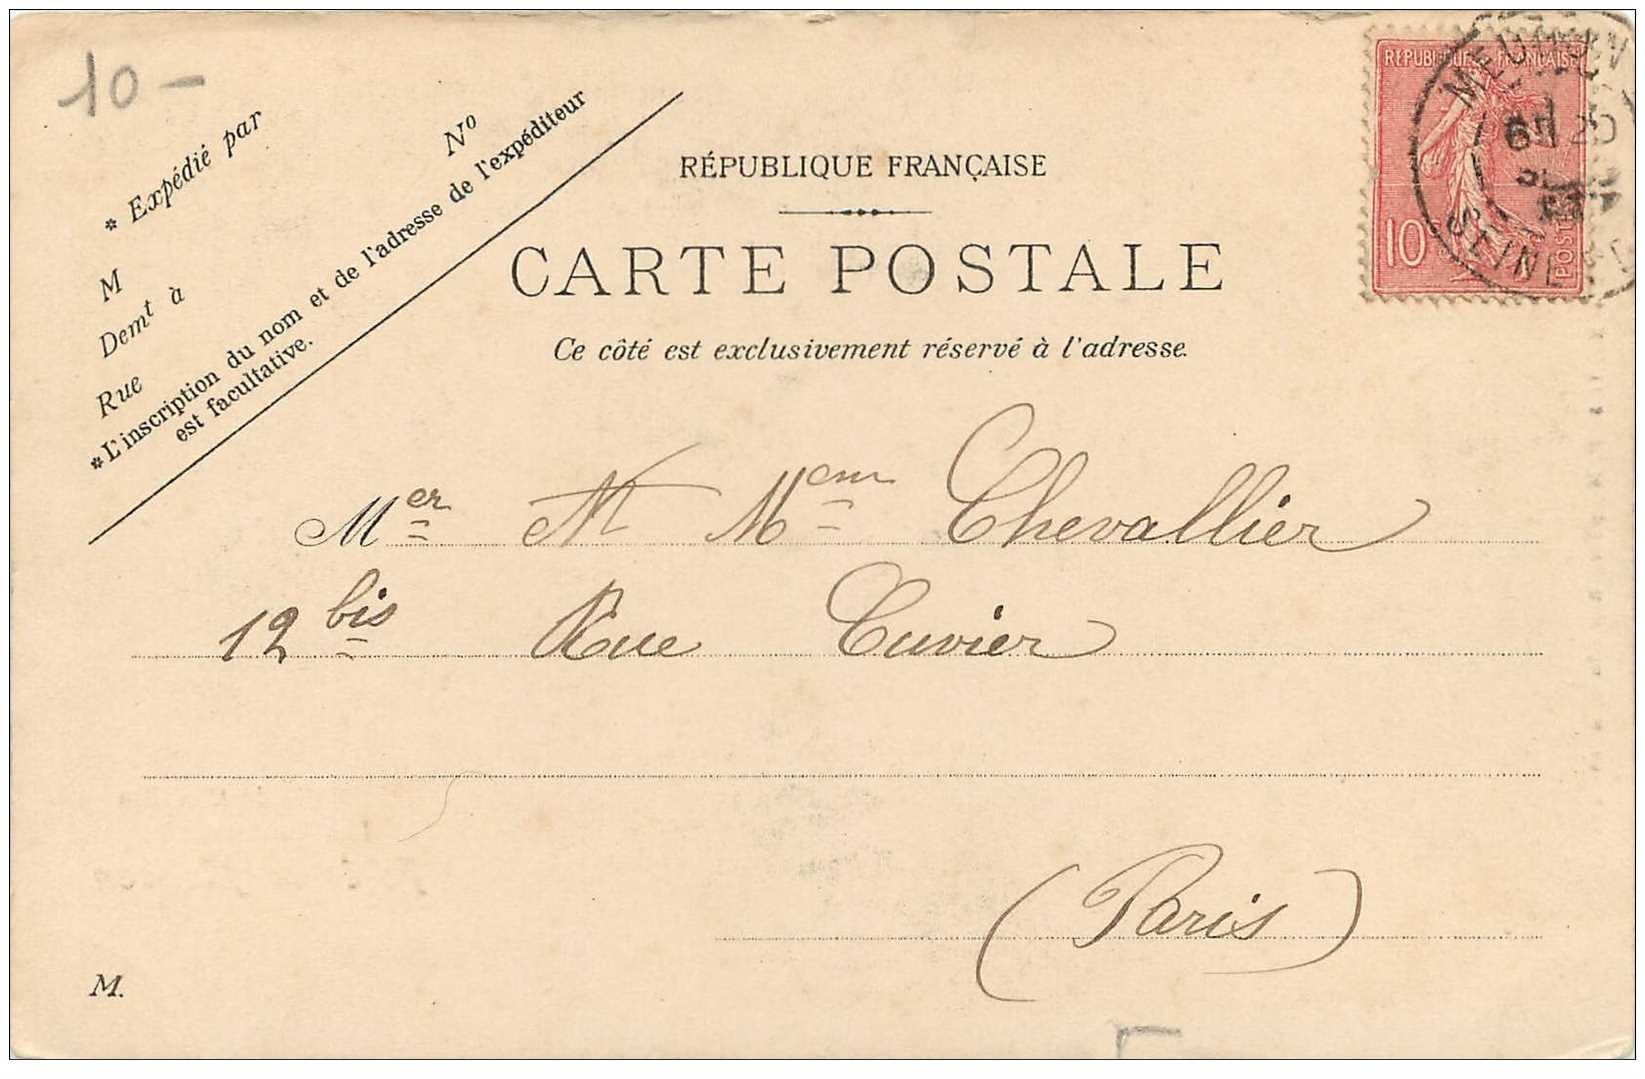 10-
* Expédié par
M
Demt à
Rue
No
*L'inscription du nom et de l'adresse de l'expéditeur
est facultative.
RÉPUBLIQUE FRANÇAISE
CARTE POSTALE
Ce côté est exclusivement réservé à l'adresse.
RÉPUBLIQUE FRANÇAISE
10
POSTES
MEUDON
SEINE
Mer M Mem Chevallier
12 bis Rue Cuvier
(Paris)
M.